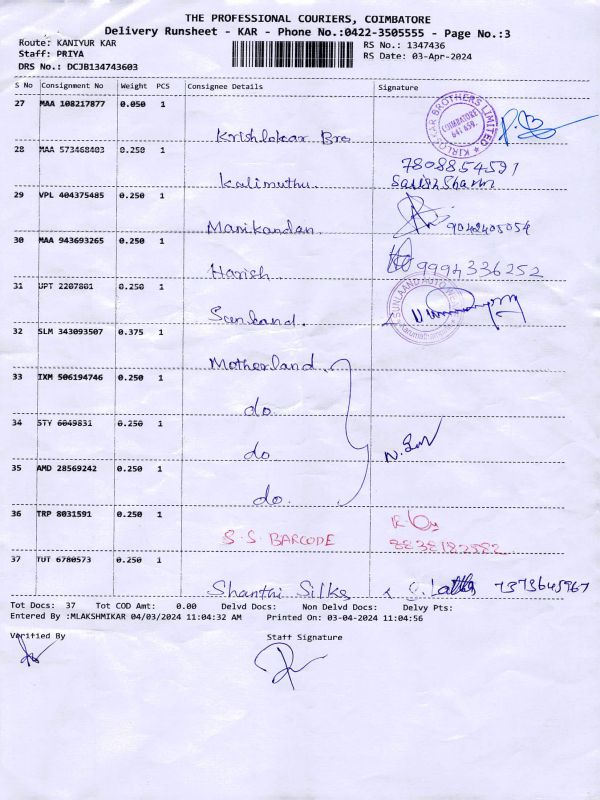 THE PROFESSIONAL COURIERS, COIMBATORE
Delivery Runsheet - KAR - Phone No.:0422-3505555 - Page No.:3
Route: KANIYUR KAR
RS No.: 1347436
Staff: PRIYA
RS Date: 03-Apr-2024
DRS No.: DCJB134743603
S No Consignment No Weight PCS Consignee Details Signature
27 MAA 108217877 0.050 1
Krishlokar Bro
KIRLOSKAR BROTHERS LIMITED COIMBATORE
28 MAA 573468403 0.250 1
7808854591
Kalimuthu
29 VPL 404375485 0.250 1
Manikandan 9042405054
30 MAA 943693265 0.250 1
Harish 9994336252
31 UPT 2207801 0.250 1
Sunland.
32 SLM 343093507 0.375 1
Motherland
33 IXM 506194746 0.250 1
do
34 STY 6049831 0.250 1
do
35 AMD 28569242 0.250 1
do.
36 TRP 8031591 0.250 1
S.S. BARCODE 8838182582
37 TUT 6780573 0.250 1
Shanthi Silks 7373645967
Tot Docs: 37 Tot COD Amt: 0.00 Delvd Docs: Non Delvd Docs: Delvy Pts:
Entered By :MLAKSHMIKAR 04/03/2024 11:04:32 AM Printed On: 03-04-2024 11:04:56
Verified By Staff Signature